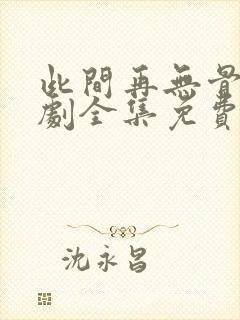 此間再無
劇全集免費
沈永昌